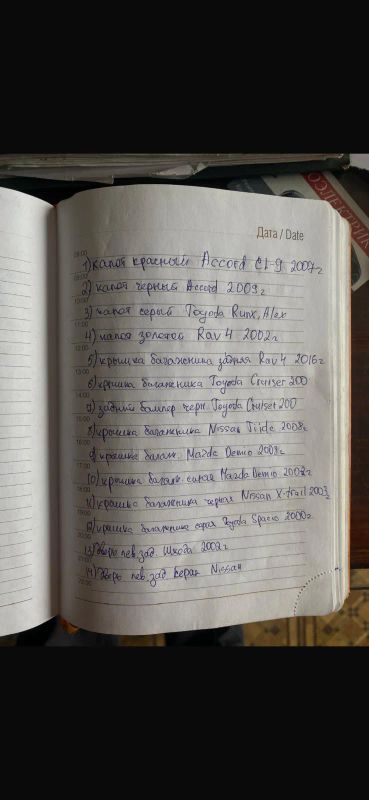 Дата / Date
1) капот красный Accord CL-9 2007г
2) капот черный Accord 2003г
3) капот серый Toyoda Runx, Alex
4) капот золотой Rav 4 2002г
5) крышка багажника задняя Rav 4 2016г
6) крышка багажника Toyoda Cruiser 200
7) задний бампер черн Toyoda Cruiser 200
8) крышка багажника Nissan Tiide 2008г
9) крышка багаж. Mazda Demio 2008г
10) крышка багаж синяя Mazda Demio 2002г
11) крышка багажника черная Nissan X-trail 2003г
12) крышка багажника серая Toyoda Spacio 2000г
13) Дверь лев. зад. Шкода 2002г
14) Дверь лев зад серая Nissan